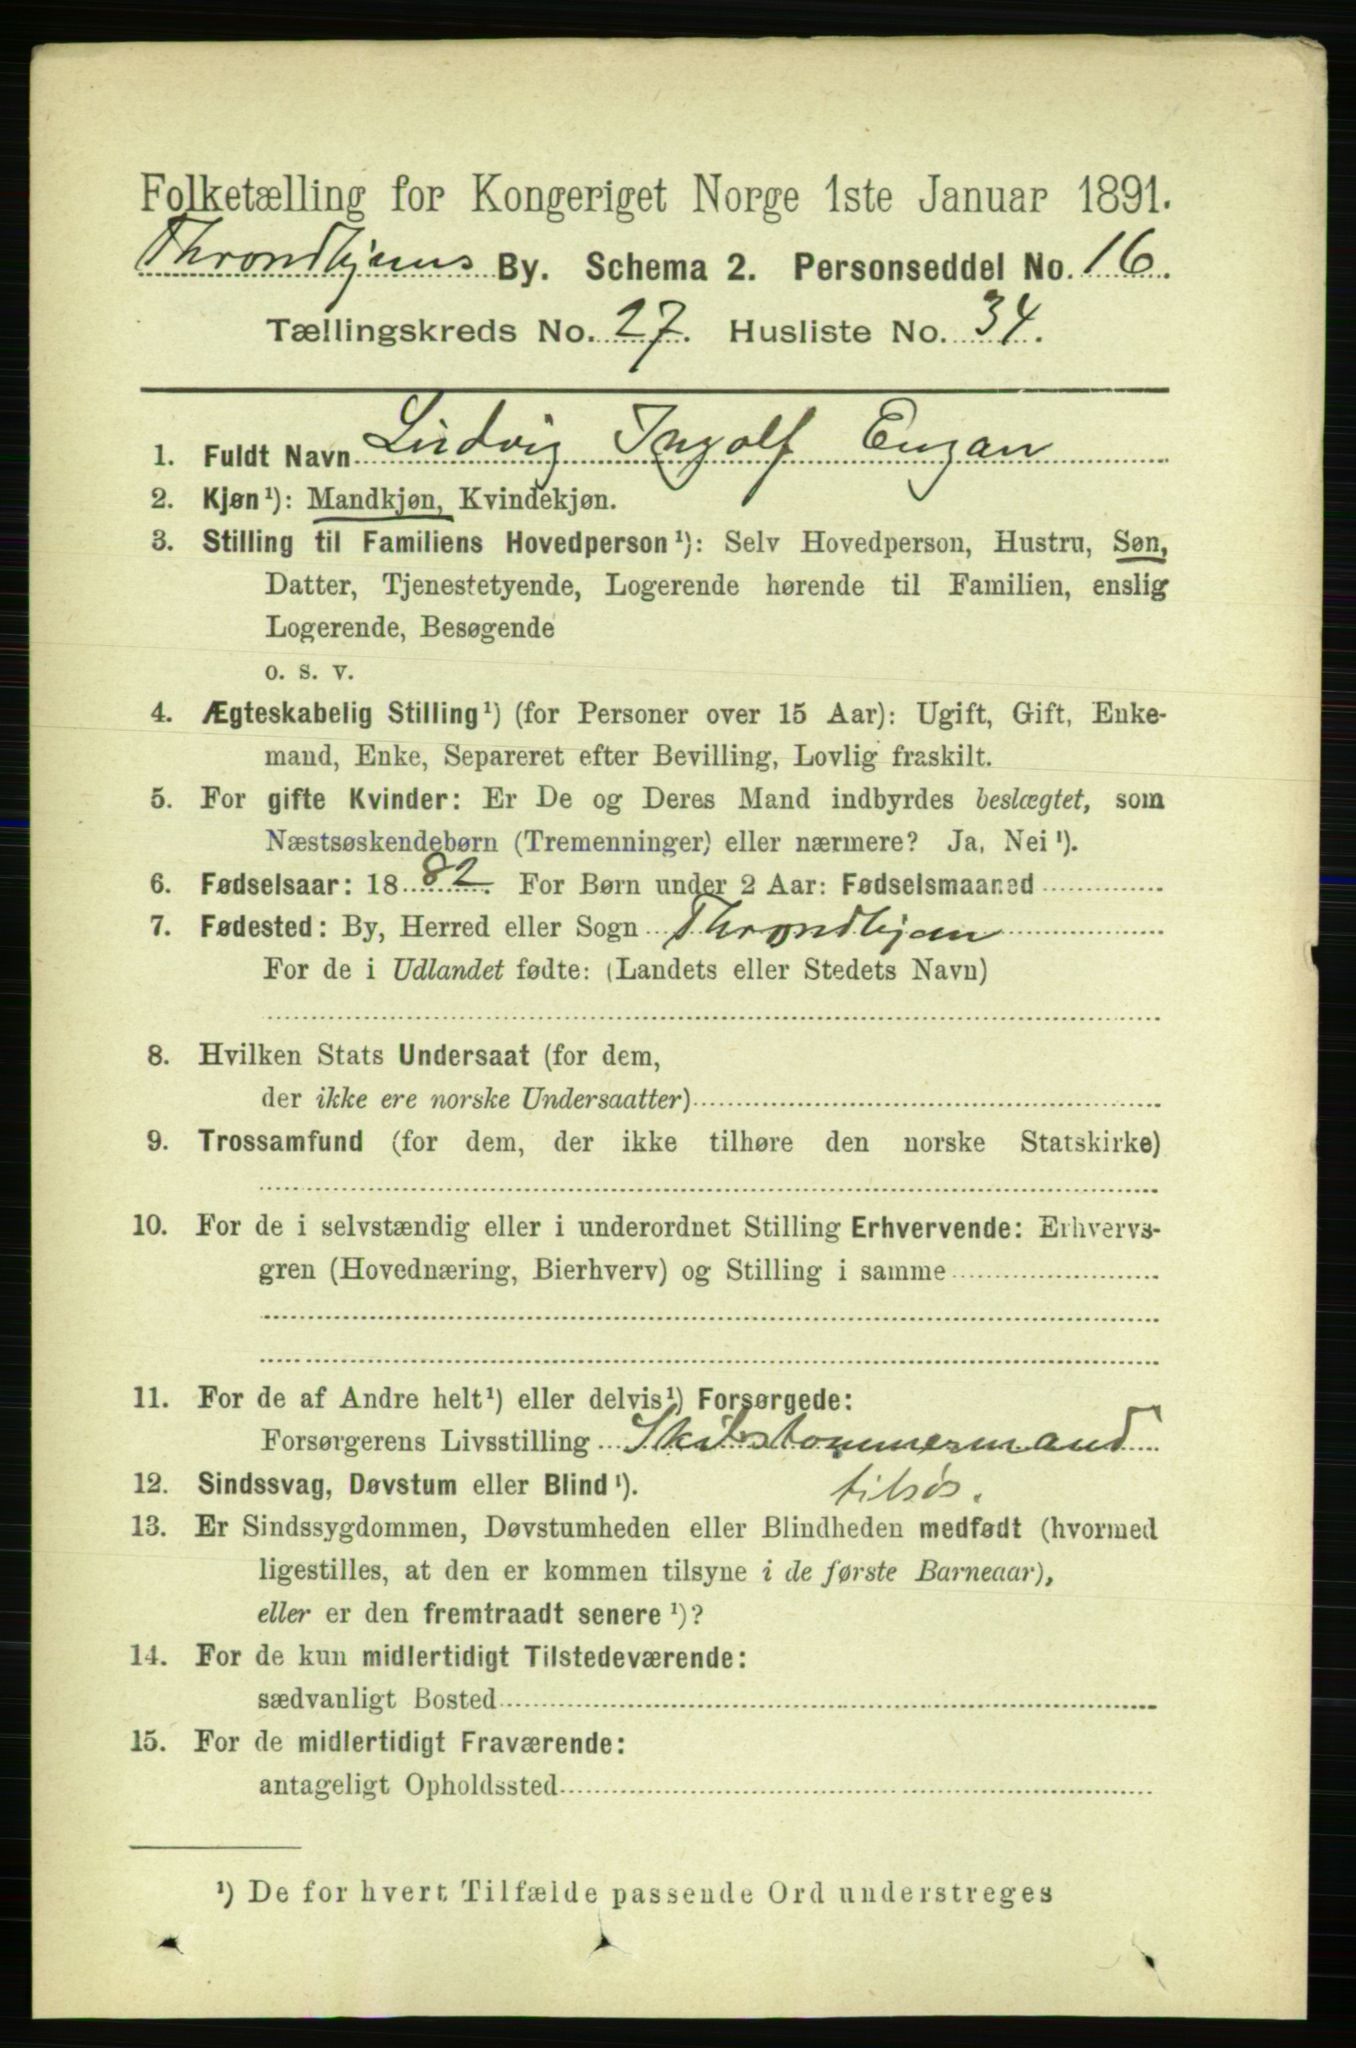 Folketælling for Kongeriget Norge 1ste Januar 1891.
Throndhjems By. Schema 2. Personseddel No. 16.
Tællingskreds No. 27. Husliste No. 34.
1. Fuldt Navn Ludvig Ingolf Engan
2. Kjøn¹): Mandkjøn, Kvindekjøn.
3. Stilling til Familiens Hovedperson¹): Selv Hovedperson, Hustru, Søn,
Datter, Tjenestetyende, Logerende hørende til Familien, enslig
Logerende, Besøgende
o. s. v.
4. Ægteskabelig Stilling¹) (for Personer over 15 Aar): Ugift, Gift, Enke-
mand, Enke, Separeret efter Bevilling, Lovlig fraskilt.
5. For gifte Kvinder: Er De og Deres Mand indbyrdes beslægtet, som
Næstsøskendebørn (Tremenninger) eller nærmere? Ja, Nei¹).
6. Fødselsaar: 1882. For Børn under 2 Aar: Fødselsmaaned
7. Fødested: By, Herred eller Sogn Throndhjem
For de i Udlandet fødte: (Landets eller Stedets Navn)
8. Hvilken Stats Undersaat (for dem,
der ikke ere norske Undersaatter)
9. Trossamfund (for dem, der ikke tilhøre den norske Statskirke)
10. For de i selvstændig eller i underordnet Stilling Erhvervende: Erhvervs-
gren (Hovednæring, Bierhverv) og Stilling i samme
11. For de af Andre helt¹) eller delvis¹) Forsørgede:
Forsørgerens Livsstilling Skibstømmermand
12. Sindssvag, Døvstum eller Blind¹). tilsøs.
13. Er Sindssygdommen, Døvstumheden eller Blindheden medfødt (hvormed
ligestilles, at den er kommen tilsyne i de første Barneaar),
eller er den fremtraadt senere¹)?
14. For de kun midlertidigt Tilstedeværende:
sædvanligt Bosted
15. For de midlertidigt Fraværende:
antageligt Opholdssted
¹) De for hvert Tilfælde passende Ord understreges